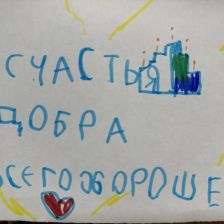 СЧАСТЬЯ
ДОБРА
ВСЕГО ХОРОШЕ